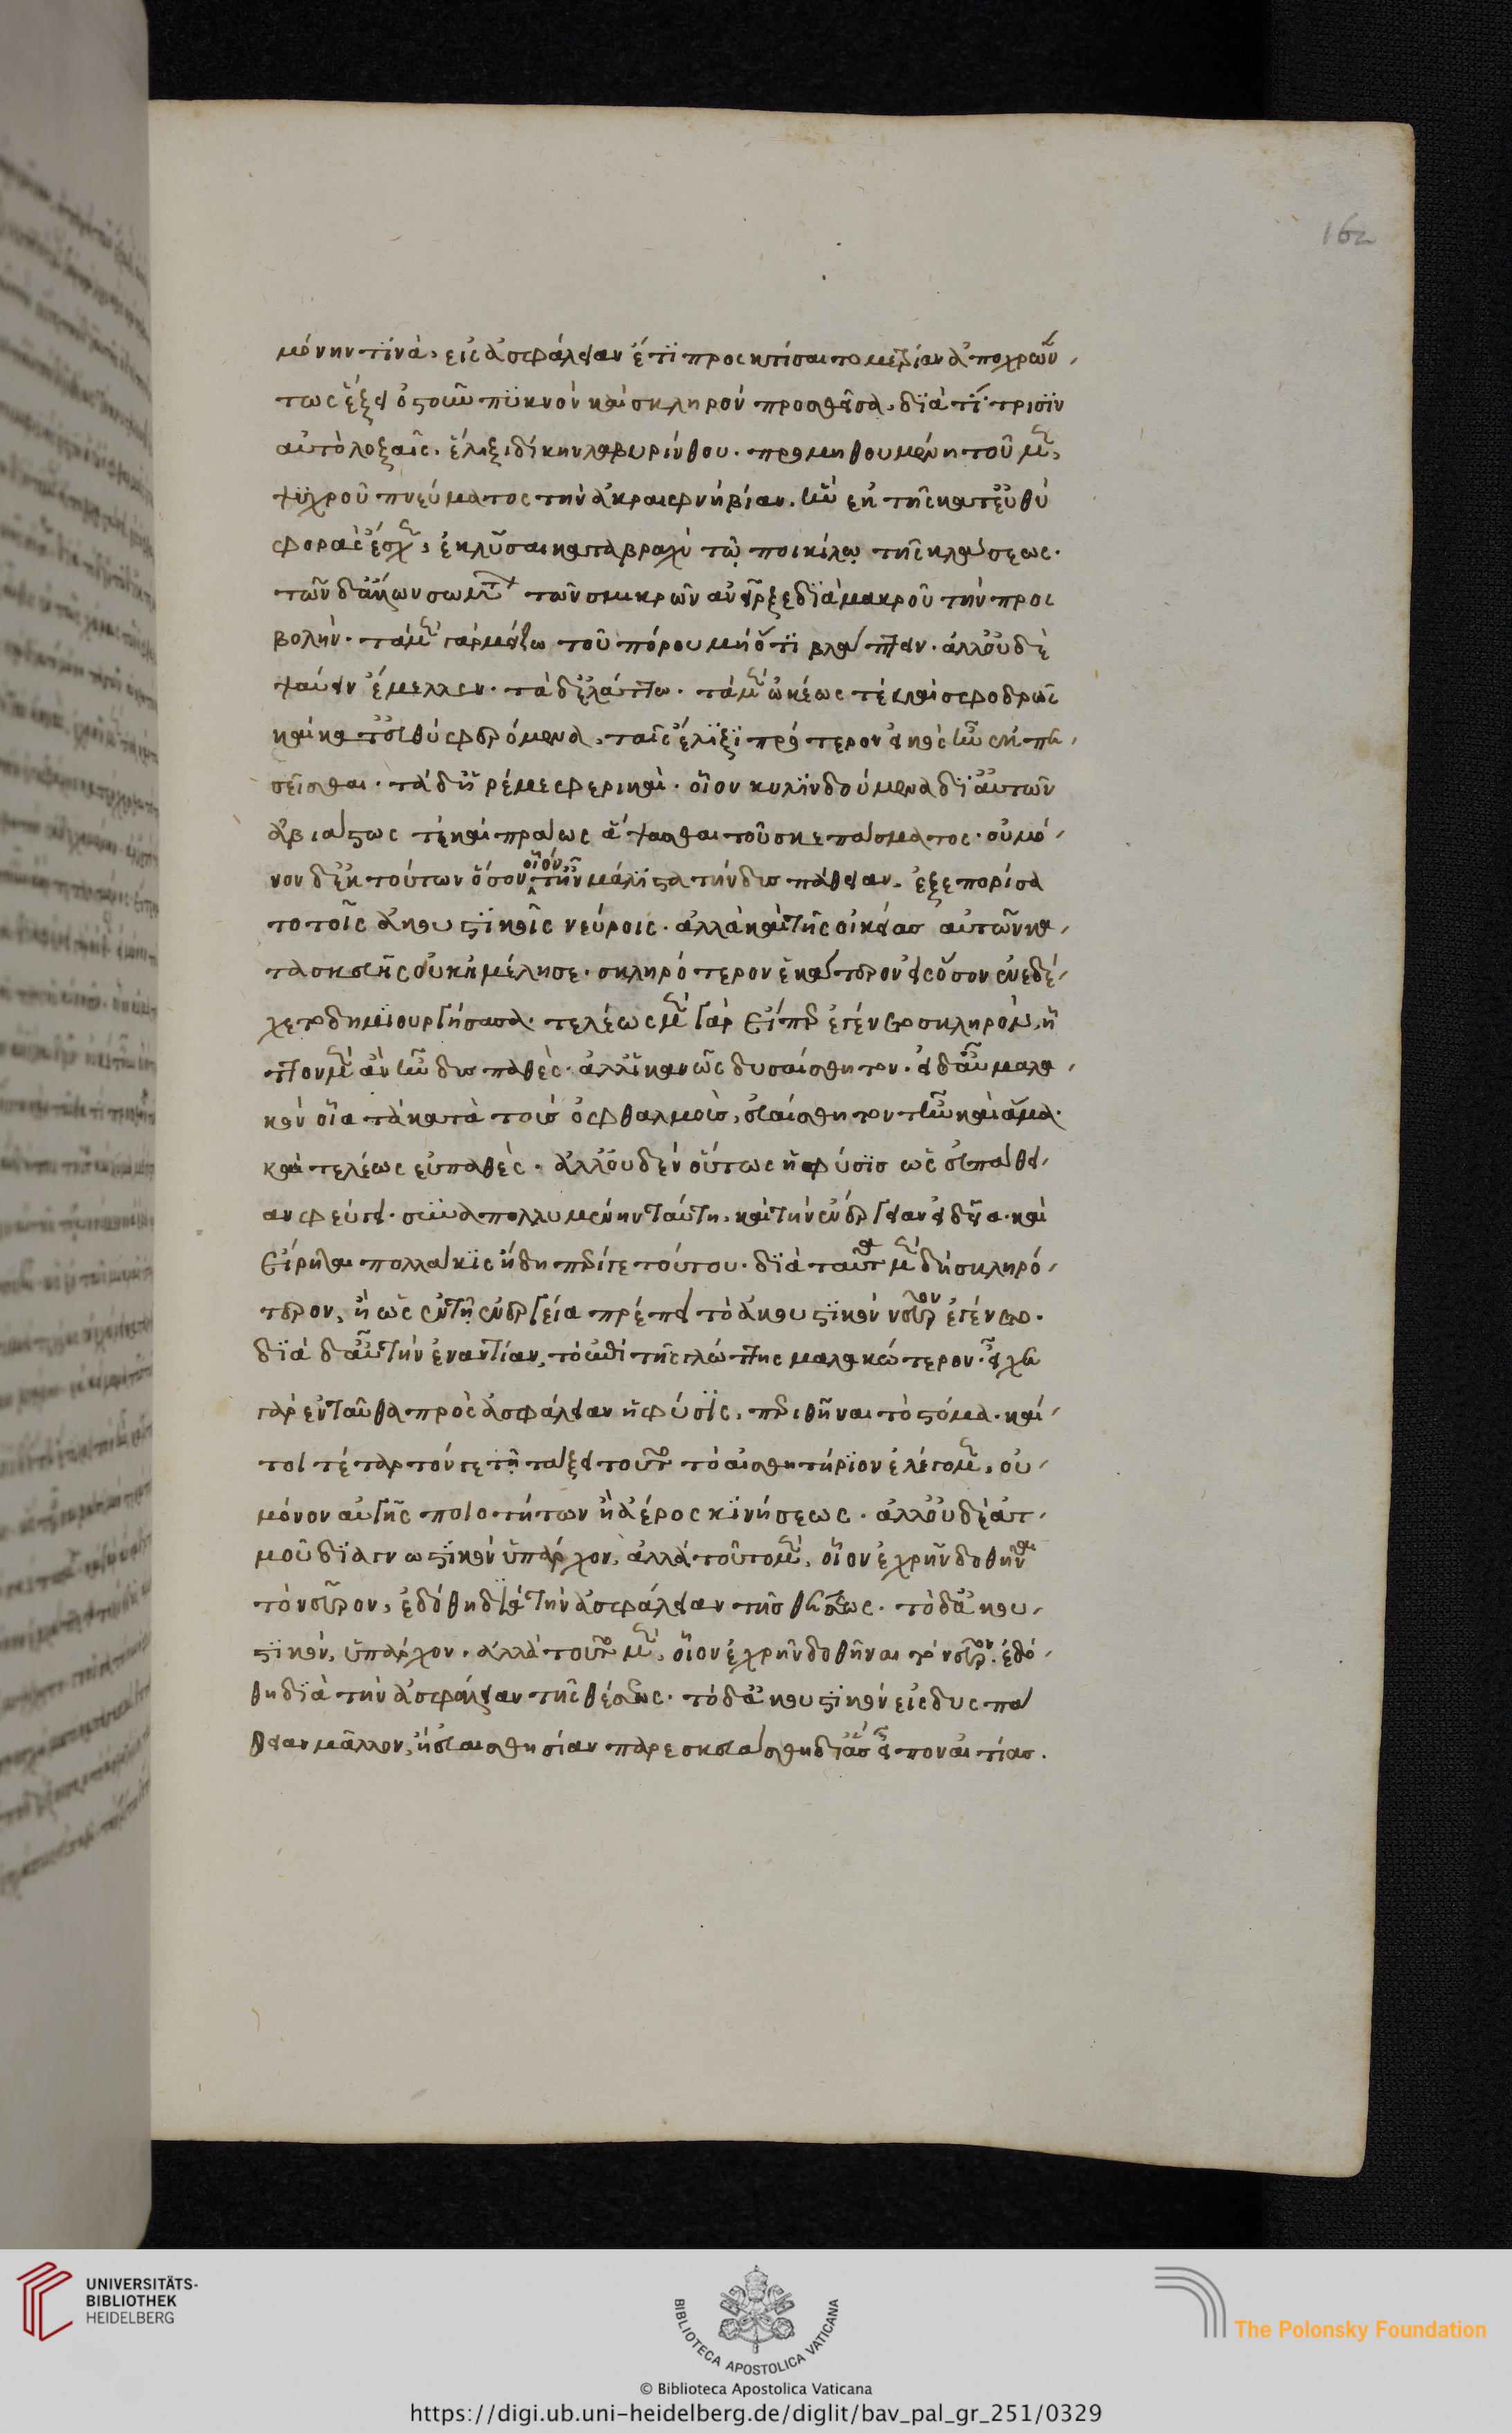 162
μόνην τινὰ, εἰς ἀσφάλειαν ἔτι προσκτίσαιτο μετρίαν ἀποχρών
τως ἕξει ὀστοῦν πυκνὸν καὶ σκληρὸν προσθεῖσα, διατι τρισιν
αὐτὸ λοξαῖς. ἕλιξι δίκην λαβυρίνθου. προμηθουμένη τοῦ μὲν
ψυχροῦ πνεύματος τὴν ἀκραιφνῆ βίαν. ἣν ἐκ τῆς κατ' εὐθὺ
φορᾶς ἔσχεν, ἐκλῦσαι κατὰ βραχὺ τῷ ποικίλῳ τῆς κλάσεως.
τῶν δ' ἄλλων σωμάτων τῶν σμικρῶν ἀνεῖρξε διὰ μακροῦ τὴν προσ
βολήν. τὰ μὲν γὰρ μείζω τοῦ πόρου μὴ ὅτι βλάπτειν. ἀλλ' οὐδὲ
ψαύειν ἔμελλεν. τὰ δ' ἐλάττω. τὰ μὲν ὠκέως τὲ καὶ σφοδρῶς
καὶ κατευθὺ φερόμενα, ταῖς ἕλιξι πρότερον εἰκὸς ἦν ἐμπε
σεῖσθαι. τὰ δ' ἠρέμες φερικαὶ. οἷον κυλινδούμενα δι' αὐτῶν
ἀβιάστως τὲ καὶ πράως ἅψασθαι τοῦ σκεπάσματος. οὐ μό
νον δ' ἐκ τούτων ὅσον οἷόν τ' ἦν μάλιστα τὴν δυσπάθειαν. ἐξεπορίσα
το τοῖς ἀκουστικοῖς νεύροις. ἀλλὰ καὶ τῆς οἰκείας αὐτῶν κα
τασκευῆς οὐκ ἠμέλησε. σκληρότερον ἑκάτερον εἰς ὅσον ἐνεδέ
χετο δημιουργήσασα. τελέως μὲν γὰρ εἴπερ ἐγένετο σκληρὸν, ἧ
ττον μὲν ἂν ἦν δυσπαθὲς. ἀλλ' ἱκανῶς δυσαίσθητον. εἰ δ' αὖ μαλα
κὸν οἷα τὰ κατὰ τοὺς ὀφθαλμοὺς, εὐαίσθητόν τ' ἦν καὶ ἅμα.
καὶ τελέως εὐπαθὲς. ἀλλ' οὐδὲν οὕτως ἡ φύσις ὡς εὐπάθει
αν φεύγει. συναπολλυμένην ταύτῃ, καὶ τὴν ἐνέργειαν εἰδυῖα. καὶ
εἴρηται πολλάκις ἤδη περί γε τούτου. διὰ ταῦτα μὲν δὴ σκληρό
τερον, ἢ ὡς ἐν τῇ ἐνεργεία πρέπει τὸ ἀκουστικὸν νεῦρον ἐγένετο.
διὰ δ' αὖ τὴν ἐναντίαν, τὸ ἐπὶ τῆς γλώττης μαλακώτερον. εἶχε
γὰρ ἐνταῦθα πρὸς ἀσφάλειαν ἡ φύσις, περιθῆναι τὸ στόμα. καί
τοι τέταρτόν γε τῇ τάξει τοῦτο τὸ αἰσθητήριον ἐλέγομεν, οὐ
μόνον αὐγῆς ποιοτήτων ἢ ἀέρος κινήσεως. ἀλλ' οὐδὲ ἀτ
μοῦ διαγνωστικὸν ὑπάρχον, ἀλλὰ τοῦτο μὲν, οἷον ἐχρῆν δοθῆναι
τὸ νεῦρον, ἐδόθη διὰ τὴν ἀσφάλειαν τῆς θέσεως. τὸ δ' ἀκου
στικὸν, ὑπάρχον. ἀλλὰ τοῦτο μὲν, οἷον ἐχρῆν δοθῆναι τὸ νεῦρον. ἐδό
θη διὰ τὴν ἀσφάλειαν τῆς θέσεως. τὸ δ' ἀκουστικὸν εἰς δυσπά
θειαν μᾶλλον, ἢ εὐαισθησίαν παρεσκευάσθη δι' ἃς εἶπον αἰτίας.
UNIVERSITÄTS-
BIBLIOTHEK
HEIDELBERG
BIBLIOTECA APOSTOLICA VATICANA
The Polonsky Foundation
© Biblioteca Apostolica Vaticana
https://digi.ub.uni-heidelberg.de/diglit/bav_pal_gr_251/0329